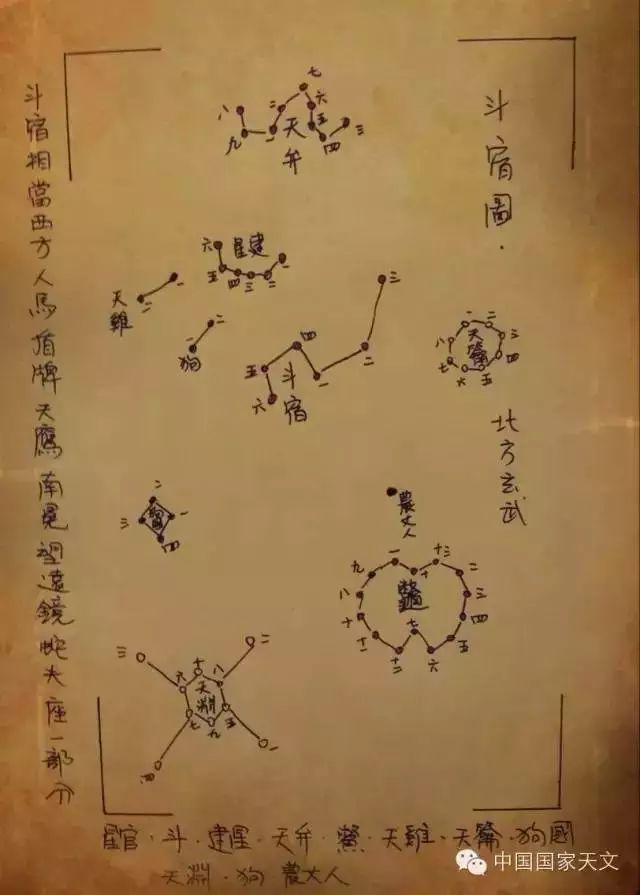 斗宿圖·
北方玄武
七
八
二
六
九
一
五
三
四
天弁
六
星建
一
五
四
三
二
天雞
二
一
狗
二
一
三
四
五
二
一
六
斗宿
一
二
八
三
四
七
六
五
天籥
二
三
一
四
農丈人
九
一
十三
二
十
八
三
鱉
十
四
七
十一
五
十二
六
二
三
十
六
八
天淵
七
五
九
四
一
斗宿相當西方人馬盾牌天鷹南冕望遠鏡蛇夫座一部分
星官·斗·建星·天弁·鱉·天雞·天籥·狗國
天淵·狗 農丈人
中国国家天文